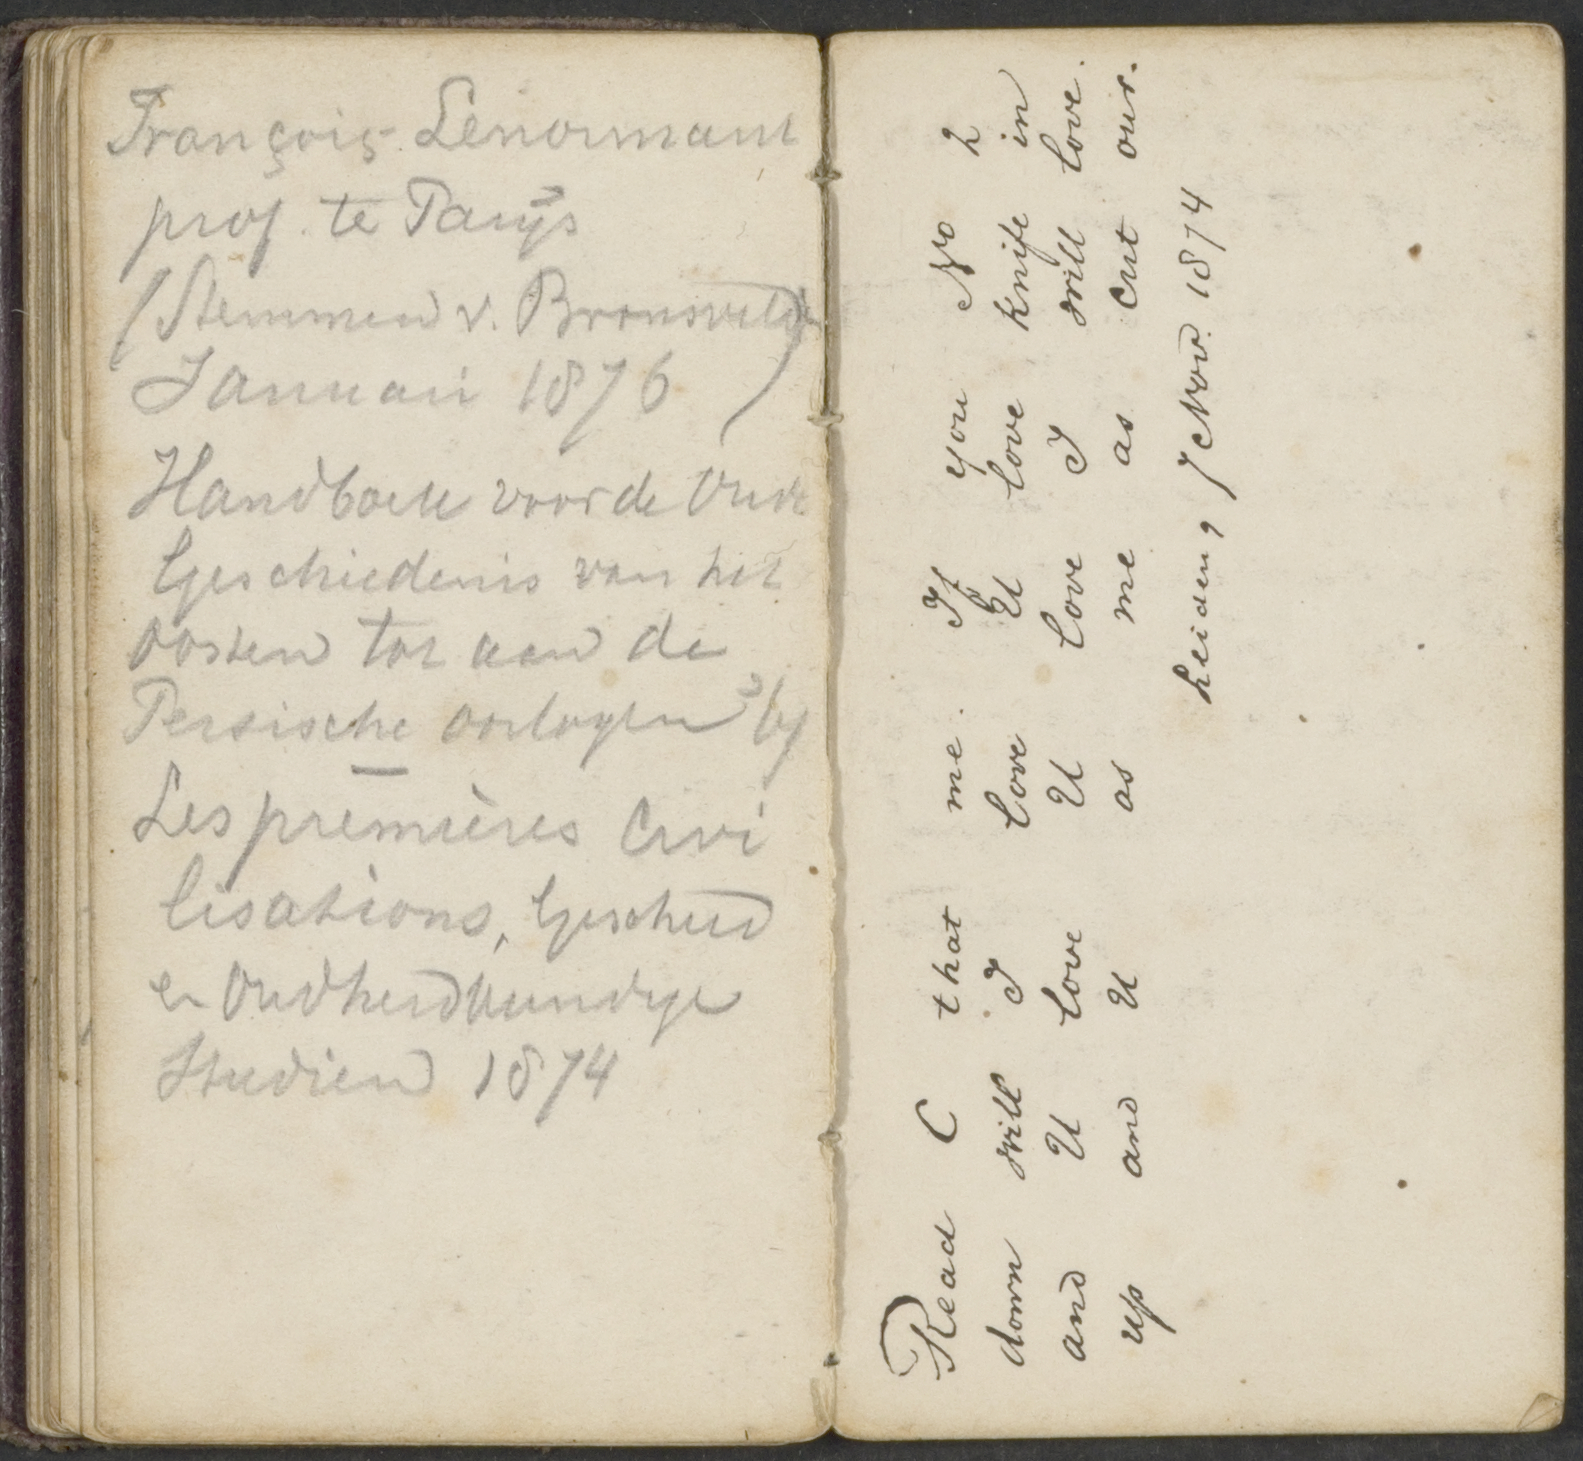 François Lenormant
prof. te Parijs
(Stemmen v. Bronsveld
Januari 1876)
Handboek voor de Oude
Geschiedenis van het
oosten tot aan de
Persische oorlogen bij
Les premières Civi
lisations, Geschied
en Oudheidkundige
Studien 1874
Read C that me. If you No 2
down will I love U love knife in
and U love U love I will love.
up and U as me as cut our.
Leiden 7 Nov. 1874